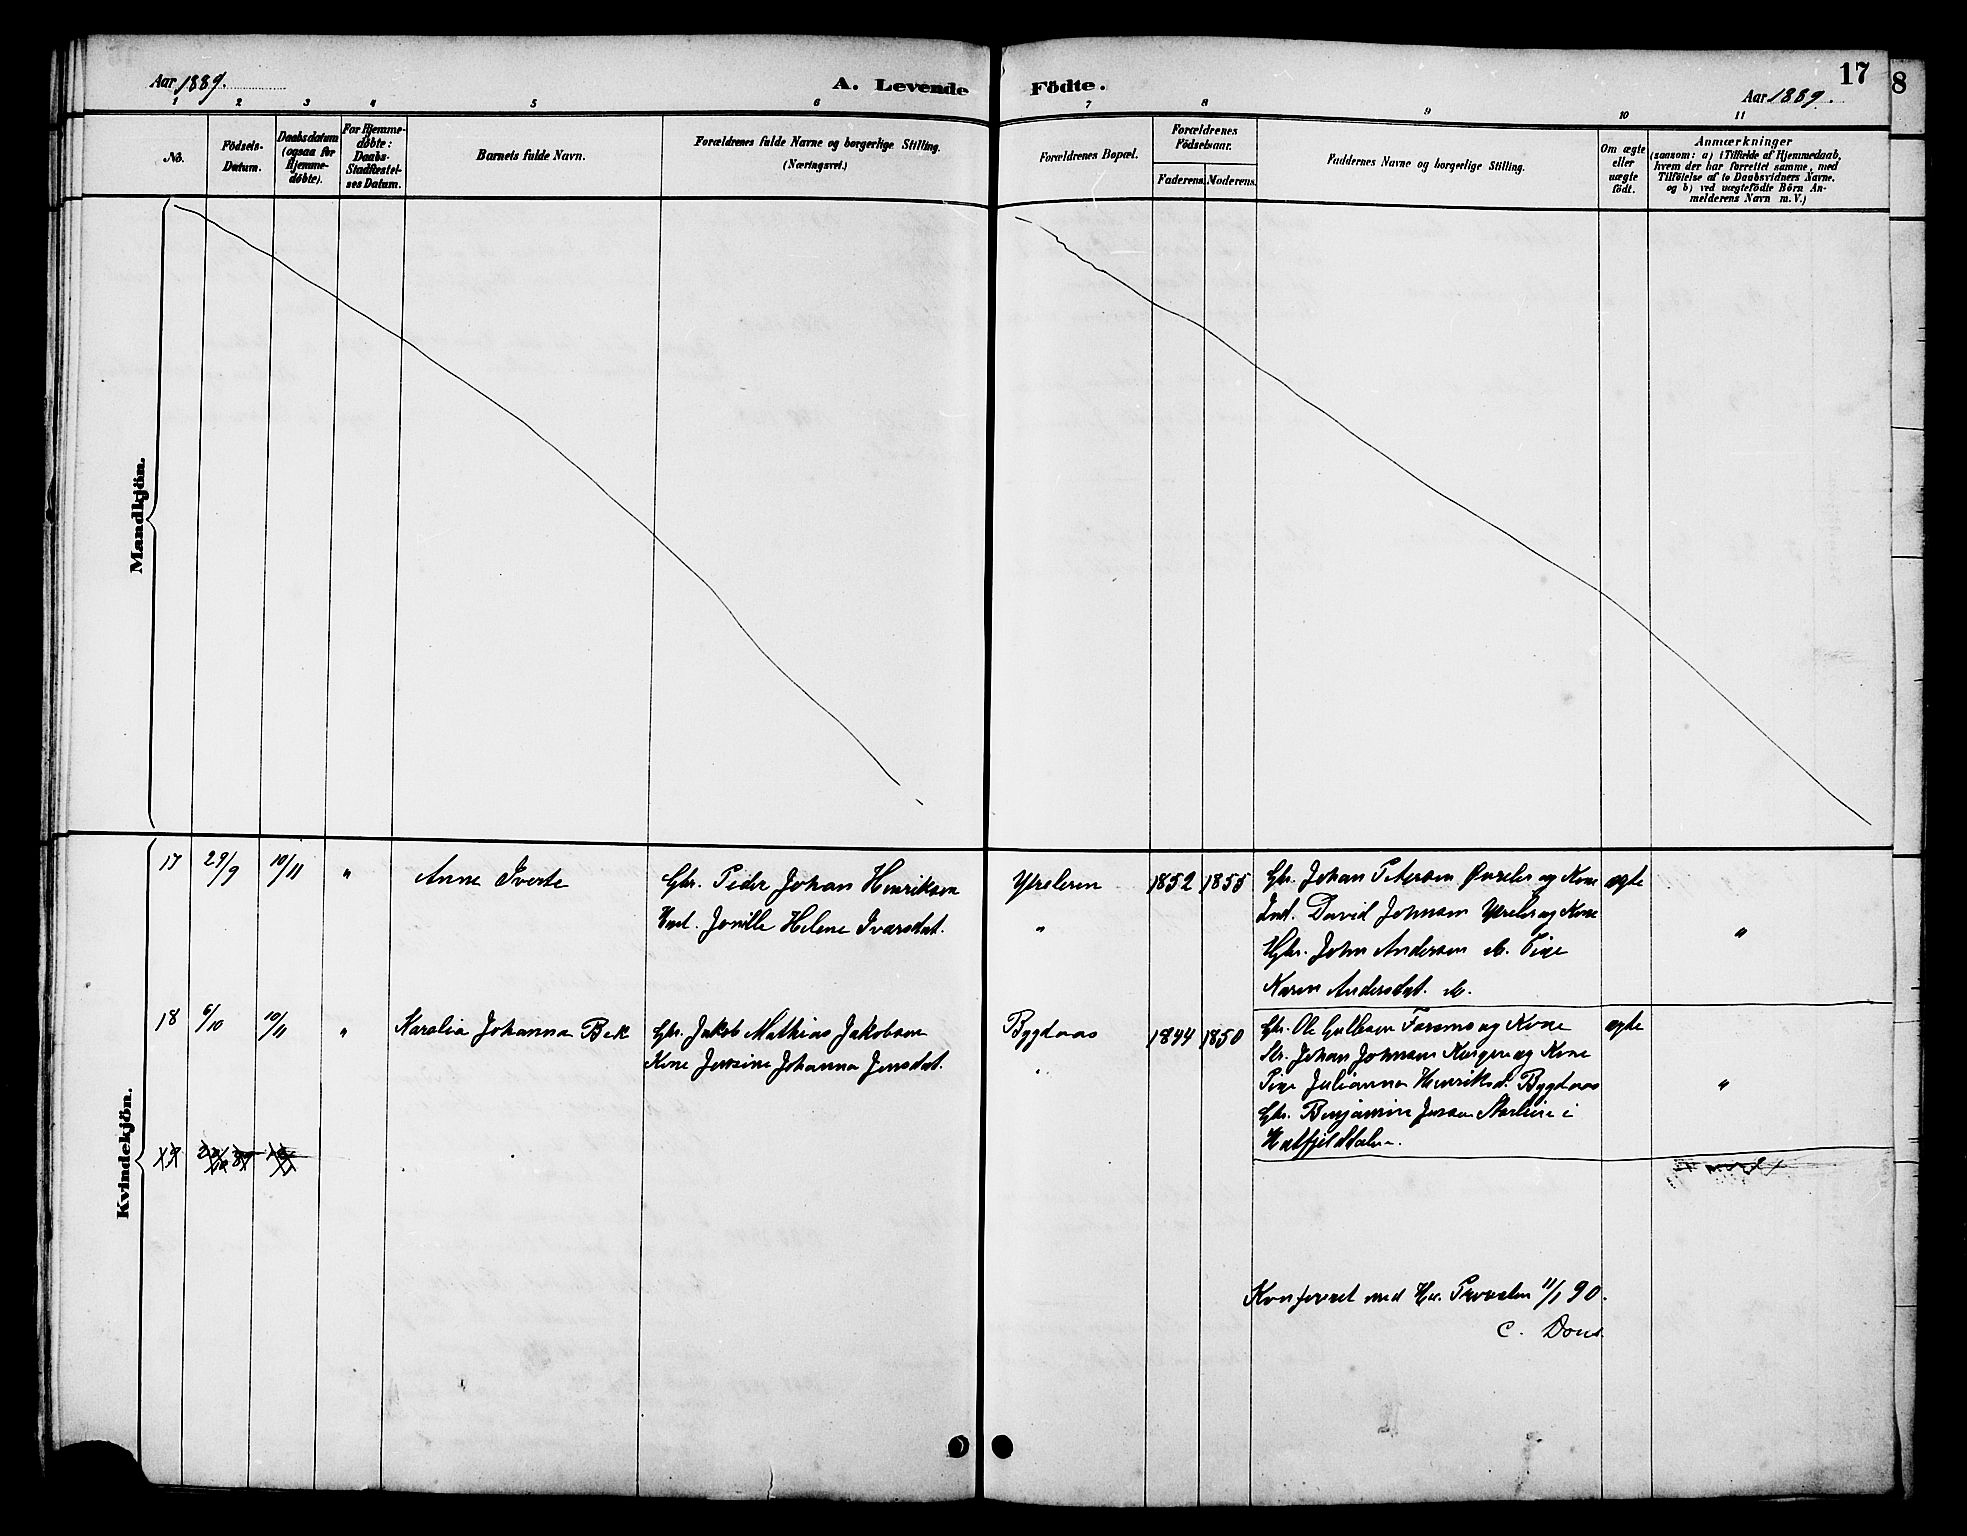 Aar 1889.
A. Levende Födte.
17
Aar 1889.
8
1 2 3 4 5 6 7 8 9 10 11
No.
Födsels-
Datum.
Daabsdatum
(ogsaa for
Hjemme-
döbte).
For Hjemme-
döbte:
Daabs-
Stadfæstel-
ses Datum.
Barnets fulde Navn.
Forældrenes fulde Navne og borgerlige Stilling.
(Næringsvei.)
Forældrenes Bopæl.
Forældrenes
Födselsaar.
Faderens. Moderens.
Faddernes Navne og borgerlige Stilling.
Om ægte
eller
uægte
født.
Anmærkninger
(saasom: a) i Tilfælde af Hjemmedaab,
hvem der har forrettet samme, med
Tilföielse af to Daabsvidners Navne.
og b) ved uægtefödte Börn An-
melderens Navn m. V.)
Mandkjön.
Kvindekjön.
17 29/9 10/11 "
Anne Iverte
Gbr. Peder Johan Henriksen
Hust. Jonille Helene Ivarsdat.
Yreleren
"
1852 1855
Gbr. Johan Petersen og Kone
Ind. David Johnsen og Kone
Gbr. John Andersen Pige
Karen Andersdat.
ægte
"
18 6/10 10/11 "
Karolia Johanna Bek
Gbr. Jakob Mathias Jakobsen
Kone Jensine Johanna Jensdat.
Bygdaas
"
1844 1850
Gbr. Ole og Kone
Johan Johnsen og Kone
Pige Julianna Henriksd. Bygdaas
Gbr. Benjamin Jensen i
Hatfjelddalen.
ægte
"
Konfereret med Hr. Provsten 11/1 90.
C. Dons.